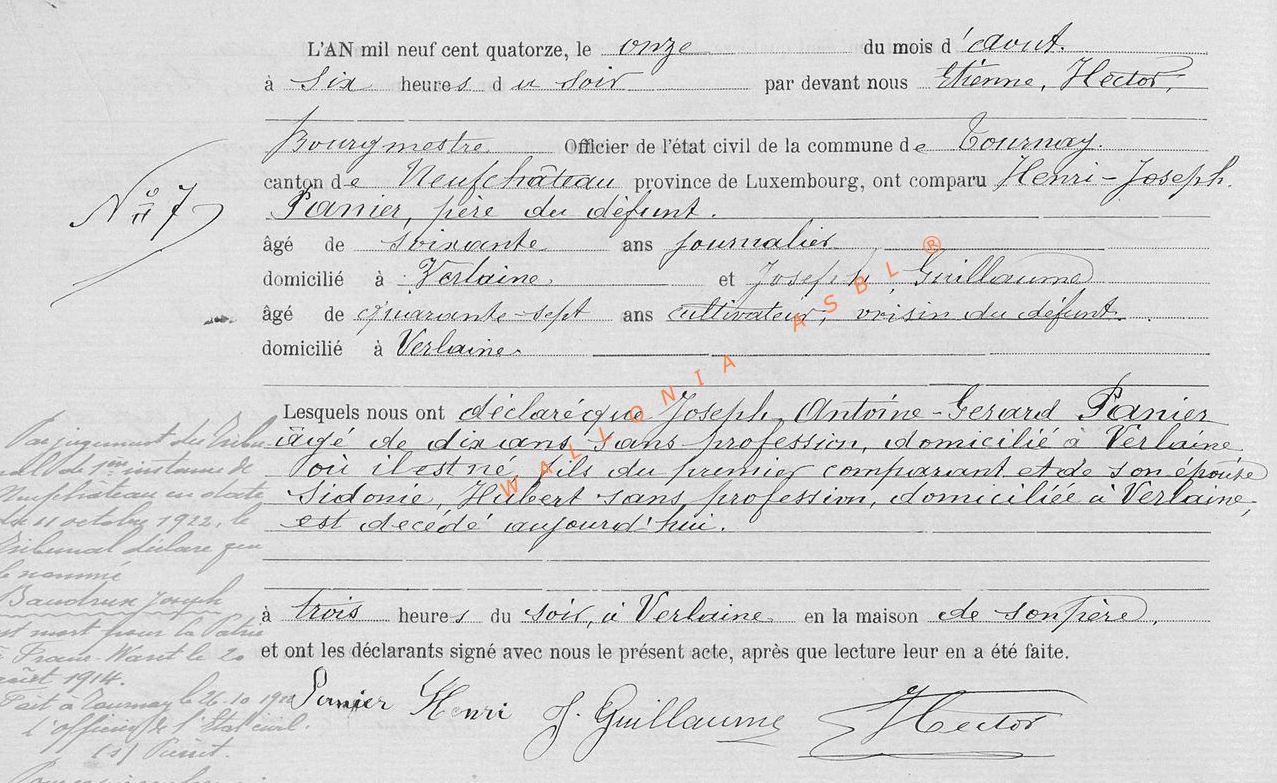 L'AN mil neuf cent quatorze, le onze du mois d'aout.
à six heures du soir par devant nous Etienne, Hector,
Bourgmestre Officier de l'état civil de la commune de Tournay.
canton de Neufchâteau province de Luxembourg, ont comparu Henri-Joseph.
Panier, père du défunt.
N° 7
âgé de soixante ans journalier
domicilié à Verlaine et Joseph Guillaume
âgé de quarante-sept ans cultivateur, voisin du défunt.
domicilié à Verlaine.
Lesquels nous ont déclaré que Joseph, Antoine-Gerard Panier
âgé de dix ans, sans profession, domicilié à Verlaine
où il est né, fils du premier comparant et de son épouse
Sidonie, Hubert sans profession, domiciliée à Verlaine,
est décédé aujourd'hui.
à trois heures du soir, à Verlaine en la maison de son père,
et ont les déclarants signé avec nous le présent acte, après que lecture leur en a été faite.
Panier Henri J. Guillaume Hector
Par jugement du Tribu-
nal de 1ère instance de
Neufchâteau en date
du 11 octobre 1922, le
Tribunal déclare que
le nommé
Baudrux Joseph
est mort pour la Patrie
à Franc-Waret le 20
août 1914.
Fait à Tournay le 26.10.
l'officier de l'Etat civil.
(s)
WALLONIA ASBL ®